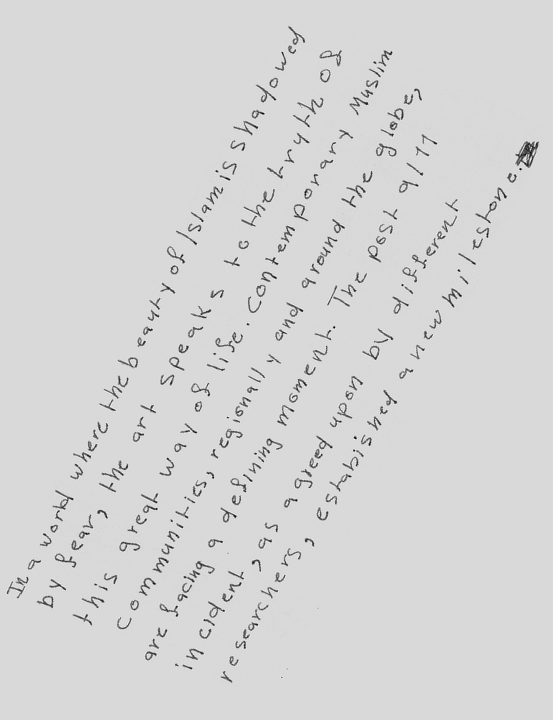 In a world where the beauty of Islam is shadowed
by fear, the art speaks to the truth of
this great way of life. Contemporary Muslim
Communities, regionally and around the globe,
are facing a defining moment. The post 9/11
incident, as agreed upon by different
researchers, estabished a new milestone.